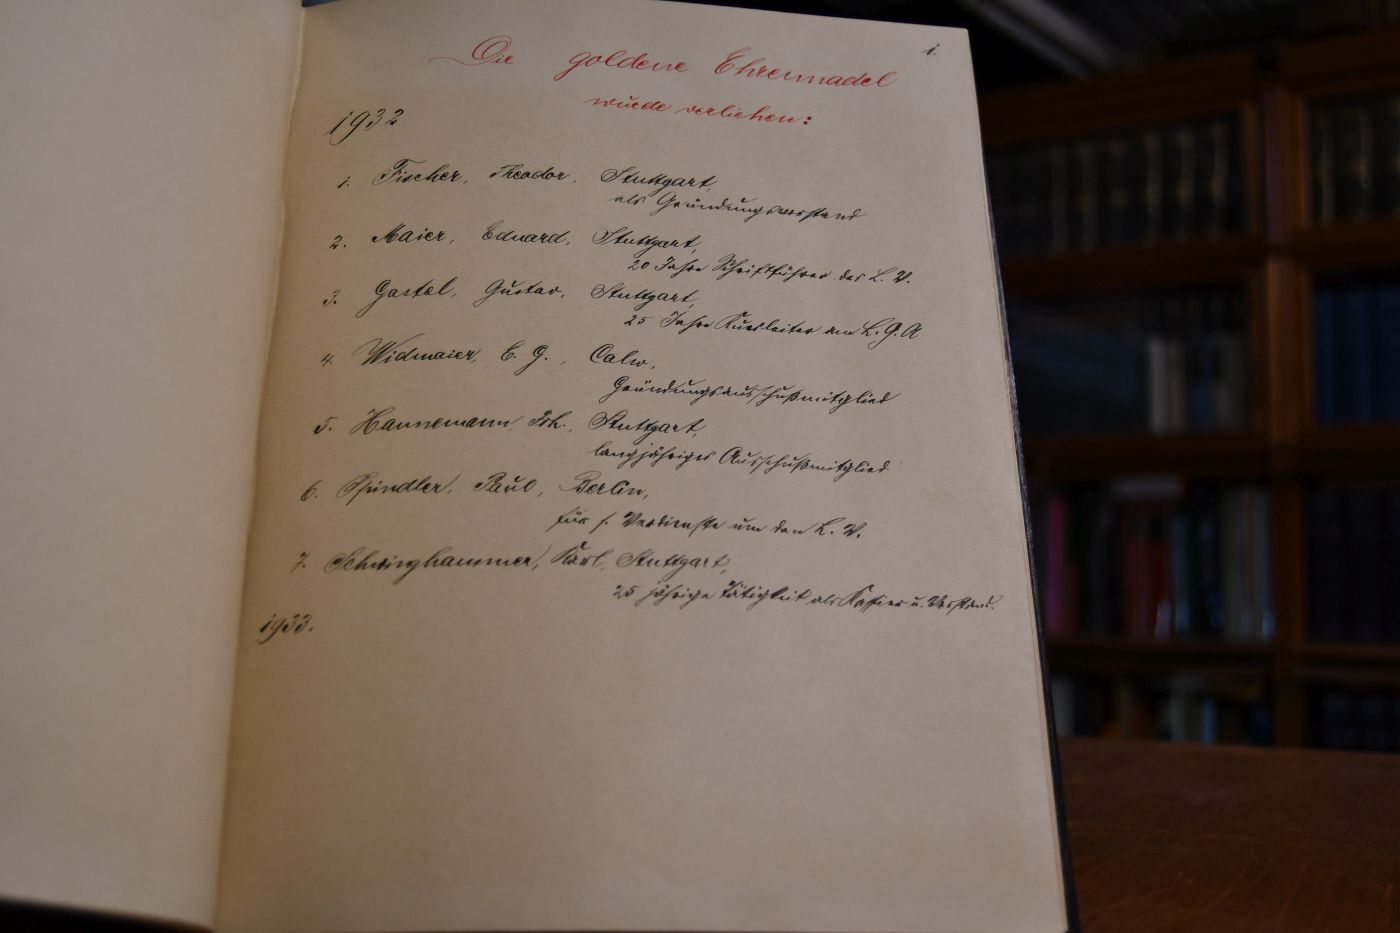 1.
Die goldene Ehrennadel
wurde verliehen:
1932
1. Fischer, Theodor, Stuttgart,
als Gründungsvorstand
2. Maier, Eduard, Stuttgart,
20 Jahre Schriftführer des L. V.
3. Gastel, Gustav, Stuttgart,
25 Jahre Kursleiter am L. G. A
4. Widmaier, E. G., Calw,
Gründungsausschußmitglied
5. Hannemann, Joh., Stuttgart,
langjähriges Ausschußmitglied
6. Spindler, Paul, Berlin,
für s. Verdienste um den L. V.
7. Schwinghammer, Karl, Stuttgart,
25 jährige Tätigkeit als Kassier u. Vorstand.
1933.